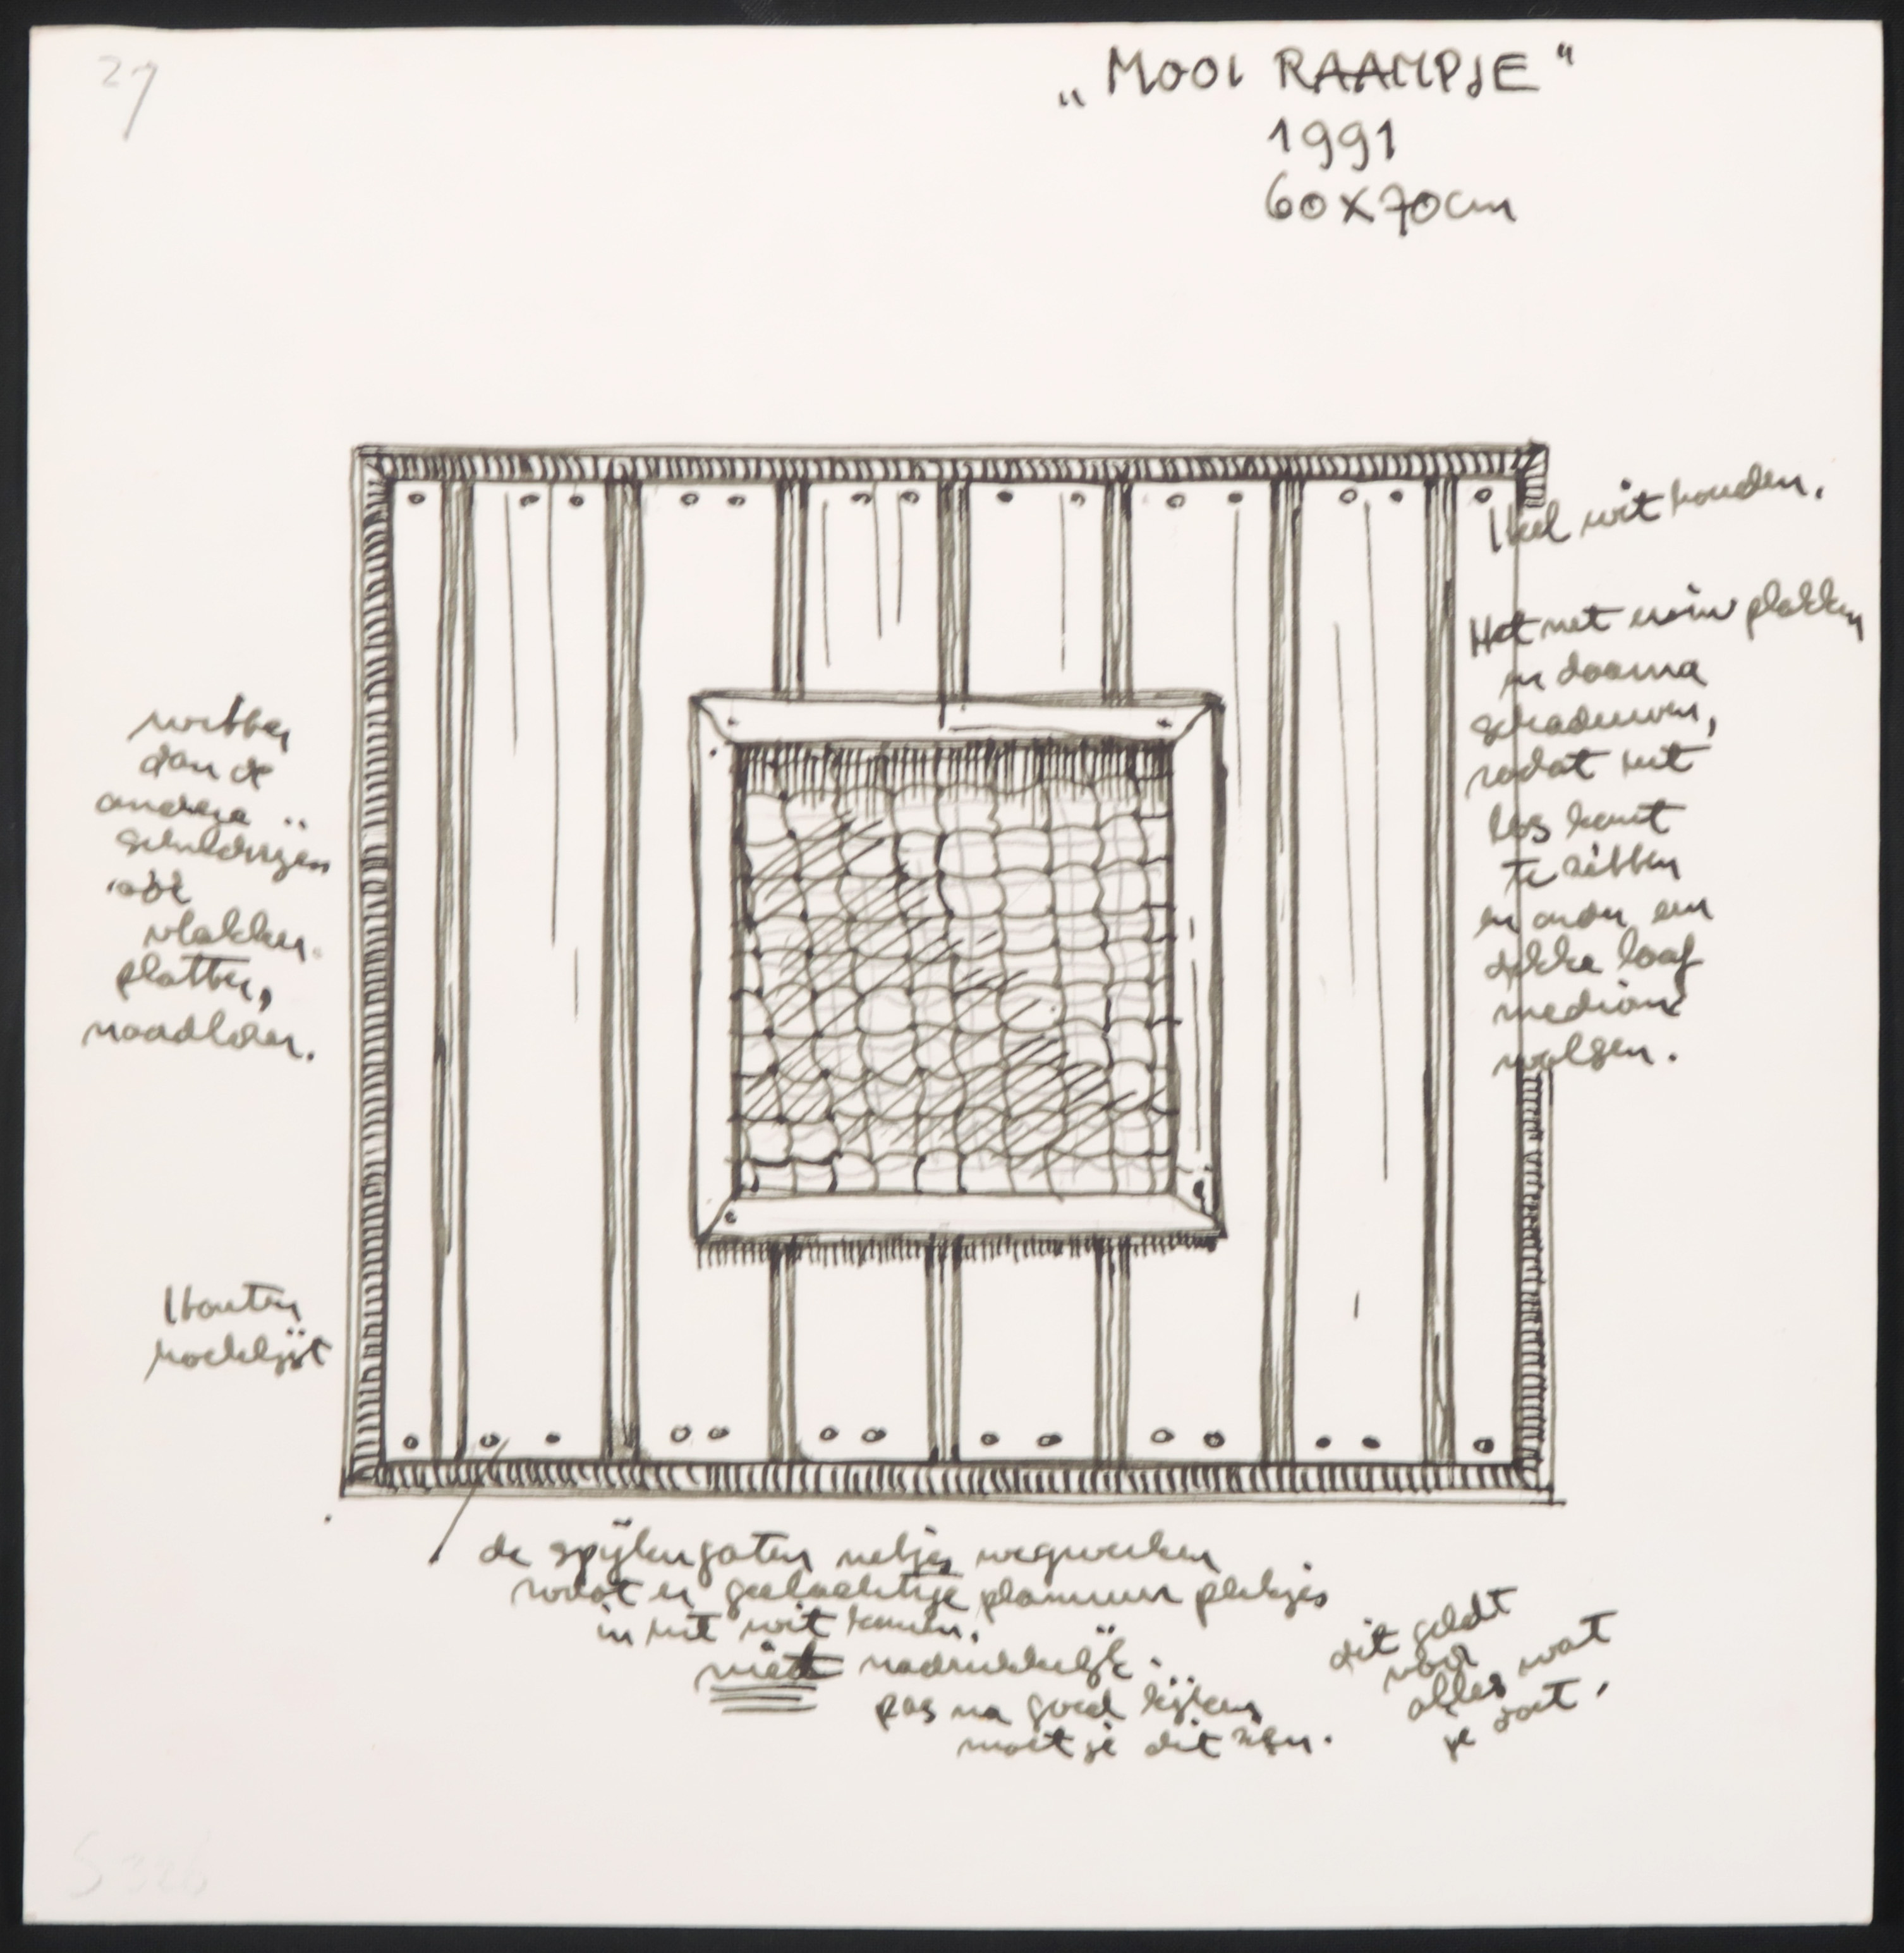 27
„MOOI RAAMPJE"
1991
60x70cm
Heel wit houden.
Het net erin plakken
en daarna
schaduwen,
zodat het
los komt
te zitten
en onder een
dikke laag
medium
walsen.
witter
dan de
andere
schilderijen
ook
vlakker.
platter,
naadloser.
Houten
hoeklijst
de spijkergaten netjes wegwerken
zodat er geelachtige plamuur plekjes
in het wit komen.
niet nadrukkelijk.
pas na goed kijken
moet je dit zien.
dit geldt
voor
alles wat
je ziet.
S 326